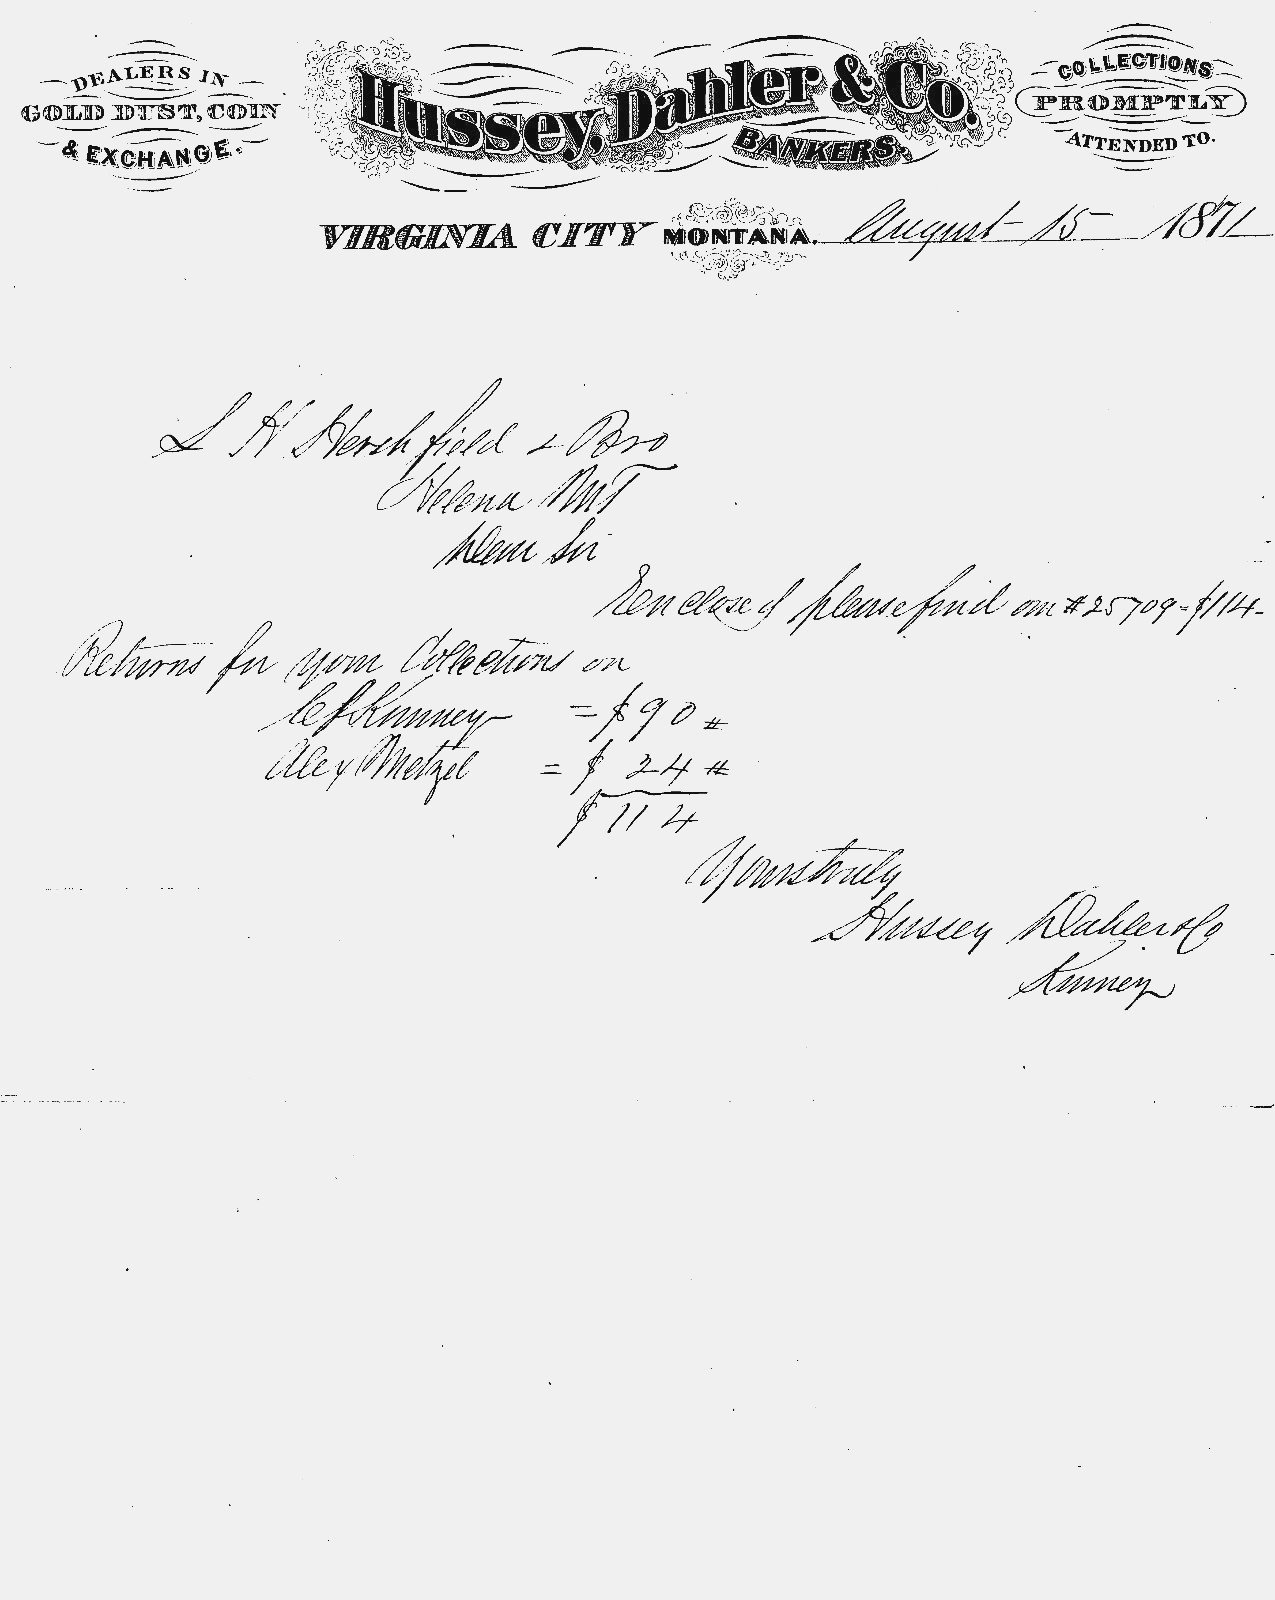 DEALERS IN
GOLD DUST, COIN
& EXCHANGE.
Hussey, Dahler & Co.
BANKERS.
COLLECTIONS
PROMPTLY
ATTENDED TO.
VIRGINIA CITY MONTANA. August 15 1871
L H Hershfield & Bro
Helena MT
Dear Sir
Enclosed please find our # 25709 = $114-
Returns for your Collections on
Kinney = $90 #
Alex Metzel = $ 24 #
$114
Yours truly
Hussey Dahler & Co
Kinney